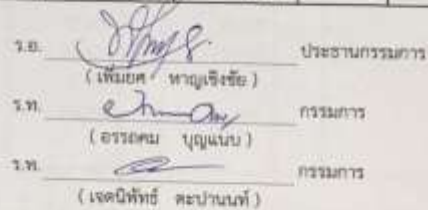 ร.อ. ประธานกรรมการ
( เพิ่มยศ หาญเชิงชัย )
ร.ท. กรรมการ
( อรรถคม บุญแนบ )
ร.ท. กรรมการ
( เจตนิพัทธ์ ตะปานนท์ )